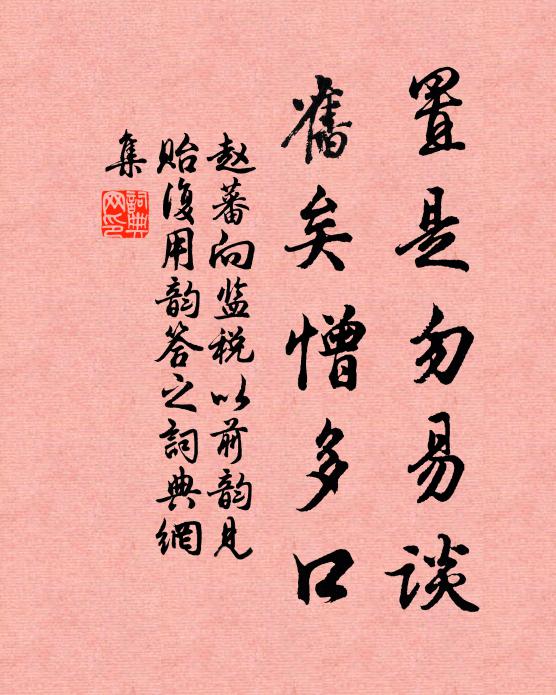 置是勿易談
舊矣憎多口
赵蕃向监税以前韵見
贻復用韵答之詞典網
集
詞典
网印